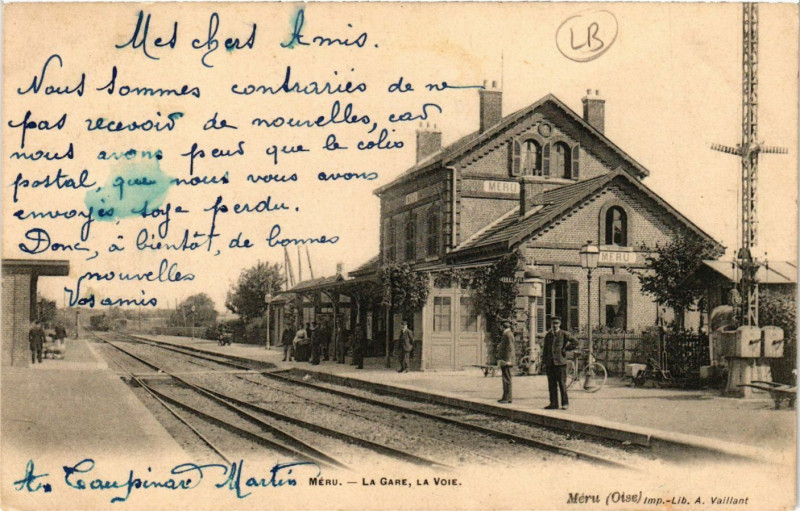 LB
Mes chers Amis.
Nous sommes contrariés de ne
pas recevoir de nouvelles, car
nous avons peur que le colis
postal, que nous vous avons
envoyés soye perdu.
Donc, à bientôt, de bonnes
nouvelles
Vos amis
MERU
MERU
MÉRU. — LA GARE, LA VOIE.
Martin
Méru (Oise) Imp.-Lib. A. Vaillant